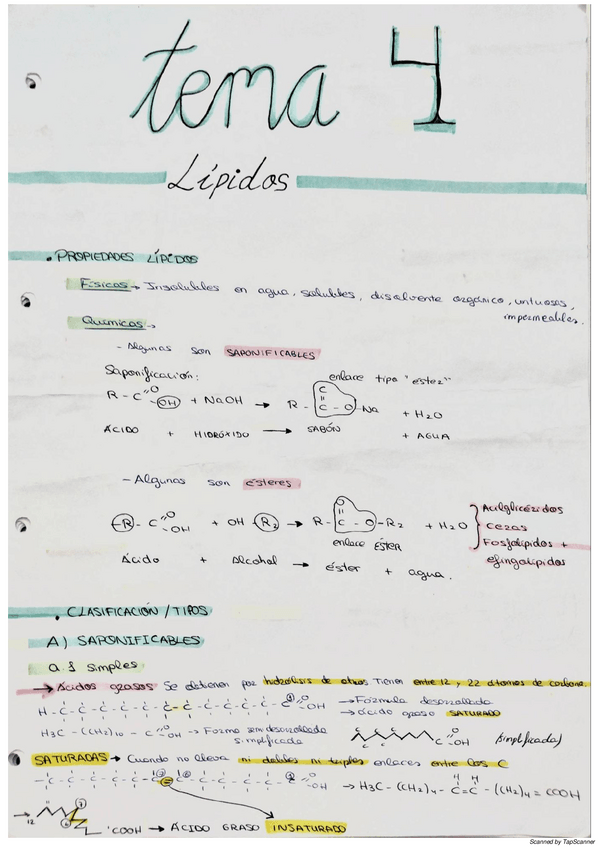 tema 4
Lípidos
. PROPIEDADES LÍPIDOS
Físicas → Insolubles en agua, solubles, disolvente orgánico, untuosas,
impermeables.
Químicas →
- Algunas son SAPONIFICABLES
Saponificación:
enlace tipo "éster"
R - C O OH + NaOH → R - C = C - O - Na + H2O
ÁCIDO + HIDRÓXIDO → SABÓN + AGUA
- Algunas son ésteres
R - C O OH + OH R2 → R - C O - O - R2 + H2O
enlace ÉSTER
Ácido + Alcohol → éster + agua.
Acilglicéridos
ceras
Fosfolípidos +
efingolípidos
. CLASIFICACIÓN / TIPOS
A) SAPONIFICABLES
a.1 simples
→ Ácidos grasos Se obtienen por hidrólisis de otros Tienen entre 12 y 22 átomos de carbono.
H - C - C - C - C - C - C - C - C - C - C - C O OH → Fórmula desarrollada
→ ácido graso SATURADO
H3C - (CH2)10 - C O OH → Forma semidesarrollada
simplificada
C O OH (simplificada)
SATURADAS → Cuando no lleva ni dobles ni triples enlaces entre los C
→ H3C - (CH2)4 - C = C - (CH2)4 = COOH
12
COOH → ÁCIDO GRASO INSATURADO
Scanned by TapScanner